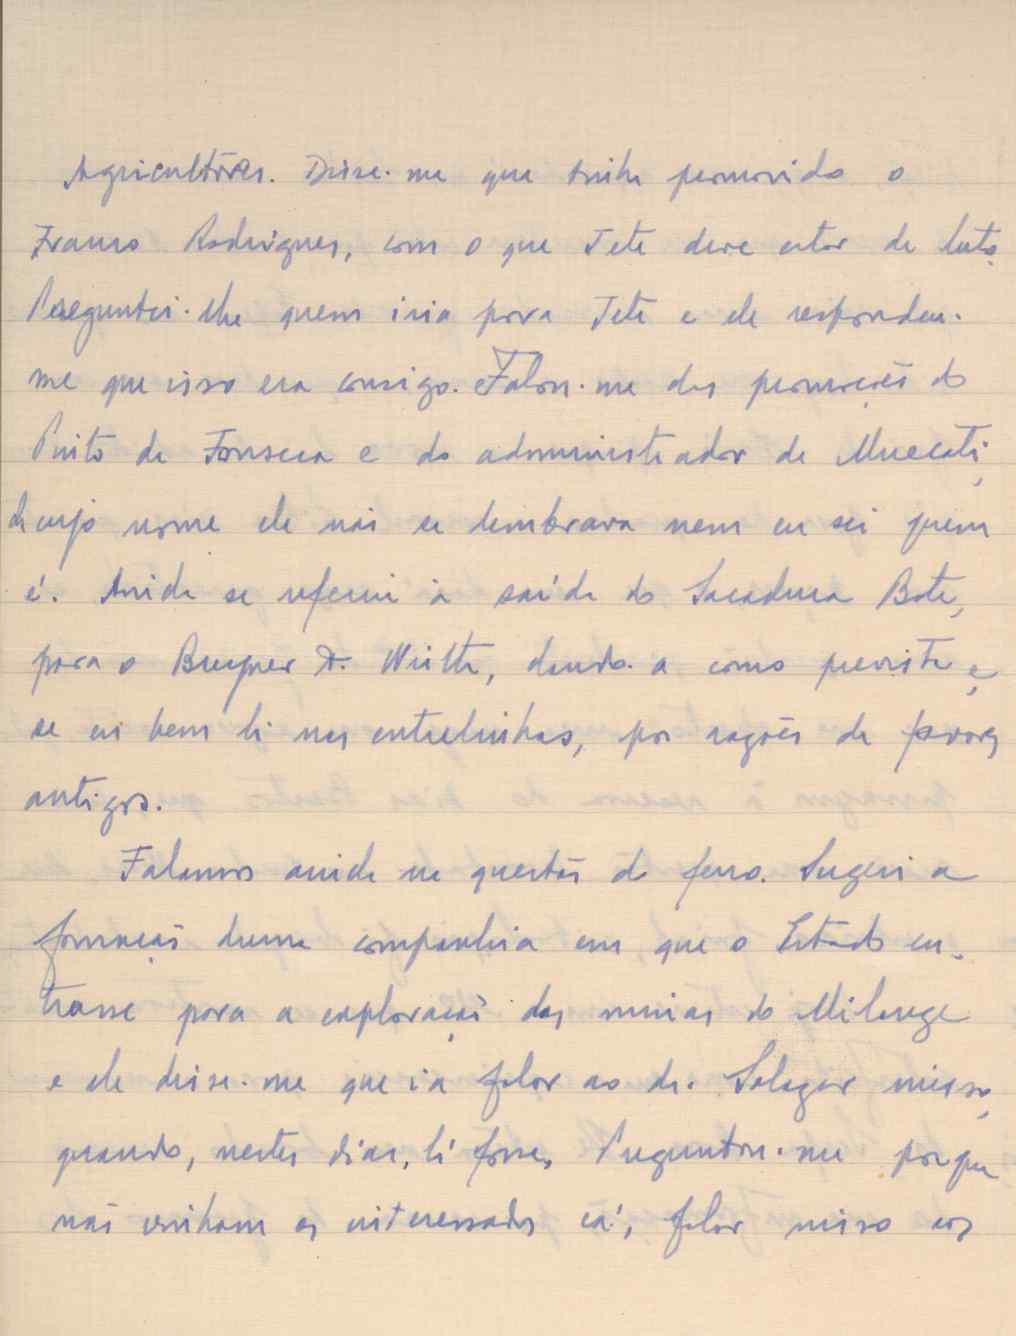 Agricultores. Disse-me que tinha promovido o
Franco Rodrigues, com o que Tete deve estar de luto.
Perguntei-lhe quem iria para Tete e ele respondeu-
me que isso era consigo. Falou-me das promoções do
Pinto da Fonseca e do administrador de
cujo nome ele não se lembrava nem eu sei quem
é. Ainda se referiu à saída do Sacadura Bote,
para o , dando-a como prevista e,
se eu bem li nas entrelinhas, por razões de
antigos.
Falamos ainda na questão do ferro. Sugeri a
formação duma companhia em que o Estado en-
trasse para a exploração das minas do Milange
e ele disse-me que ia falar ao dr. Salazar nisso,
quando, nestes dias, lá fosse. Perguntou-me porque
não vinham os interessados cá, falar nisso aos